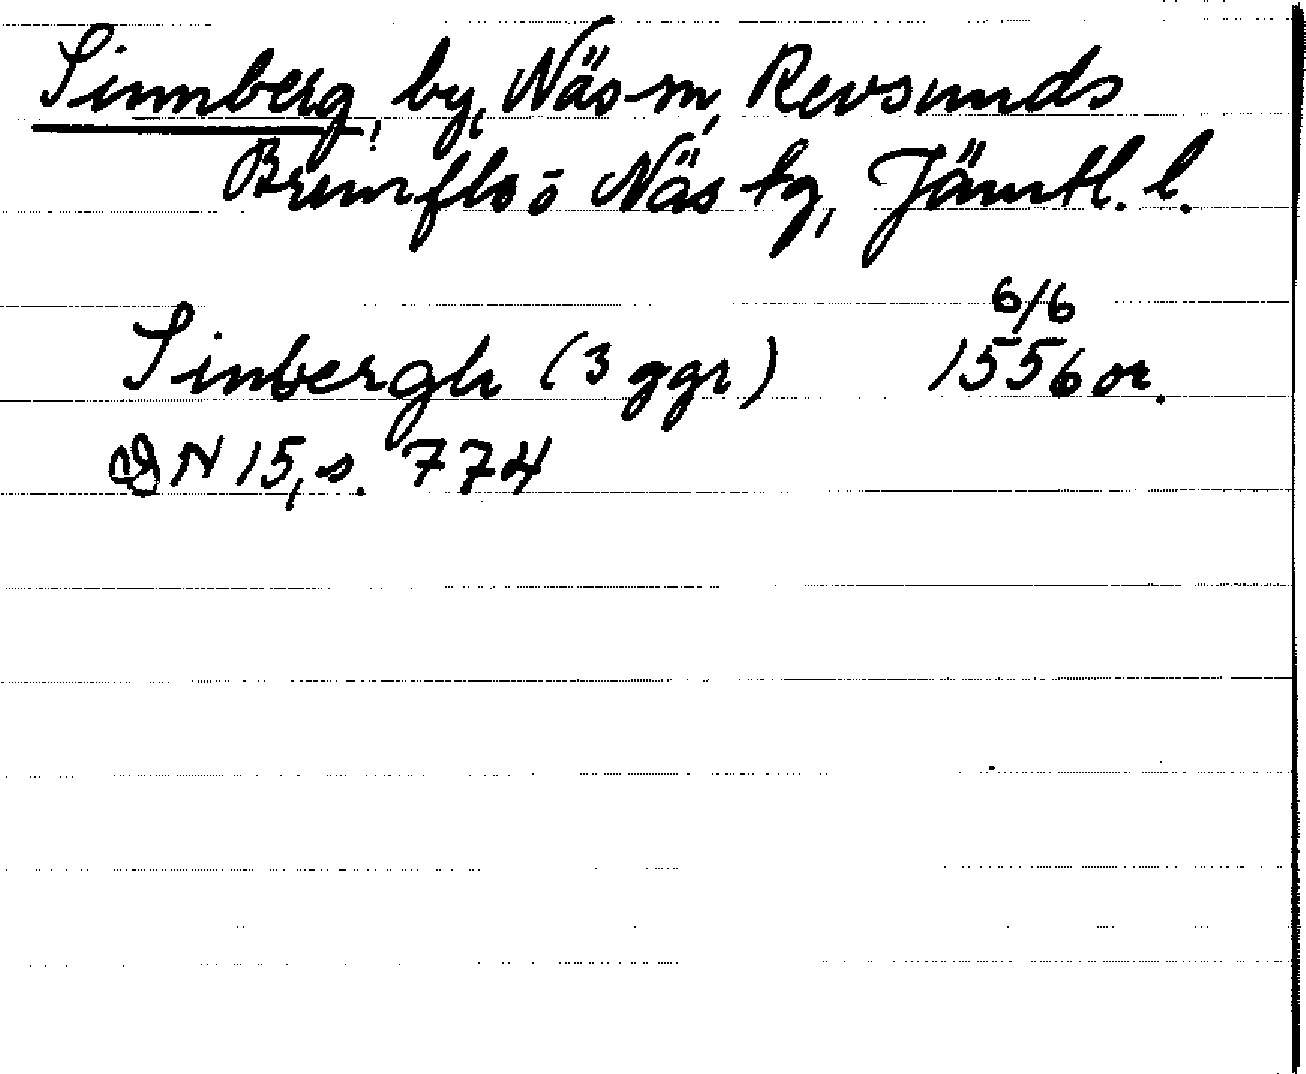 Sinnberg, by, Näs sn, Revsunds
Brunflo o Näs tg, Jämtl. l.
6/6
Sinbergh (3 ggr) 1556 or.
DN 15, s. 774